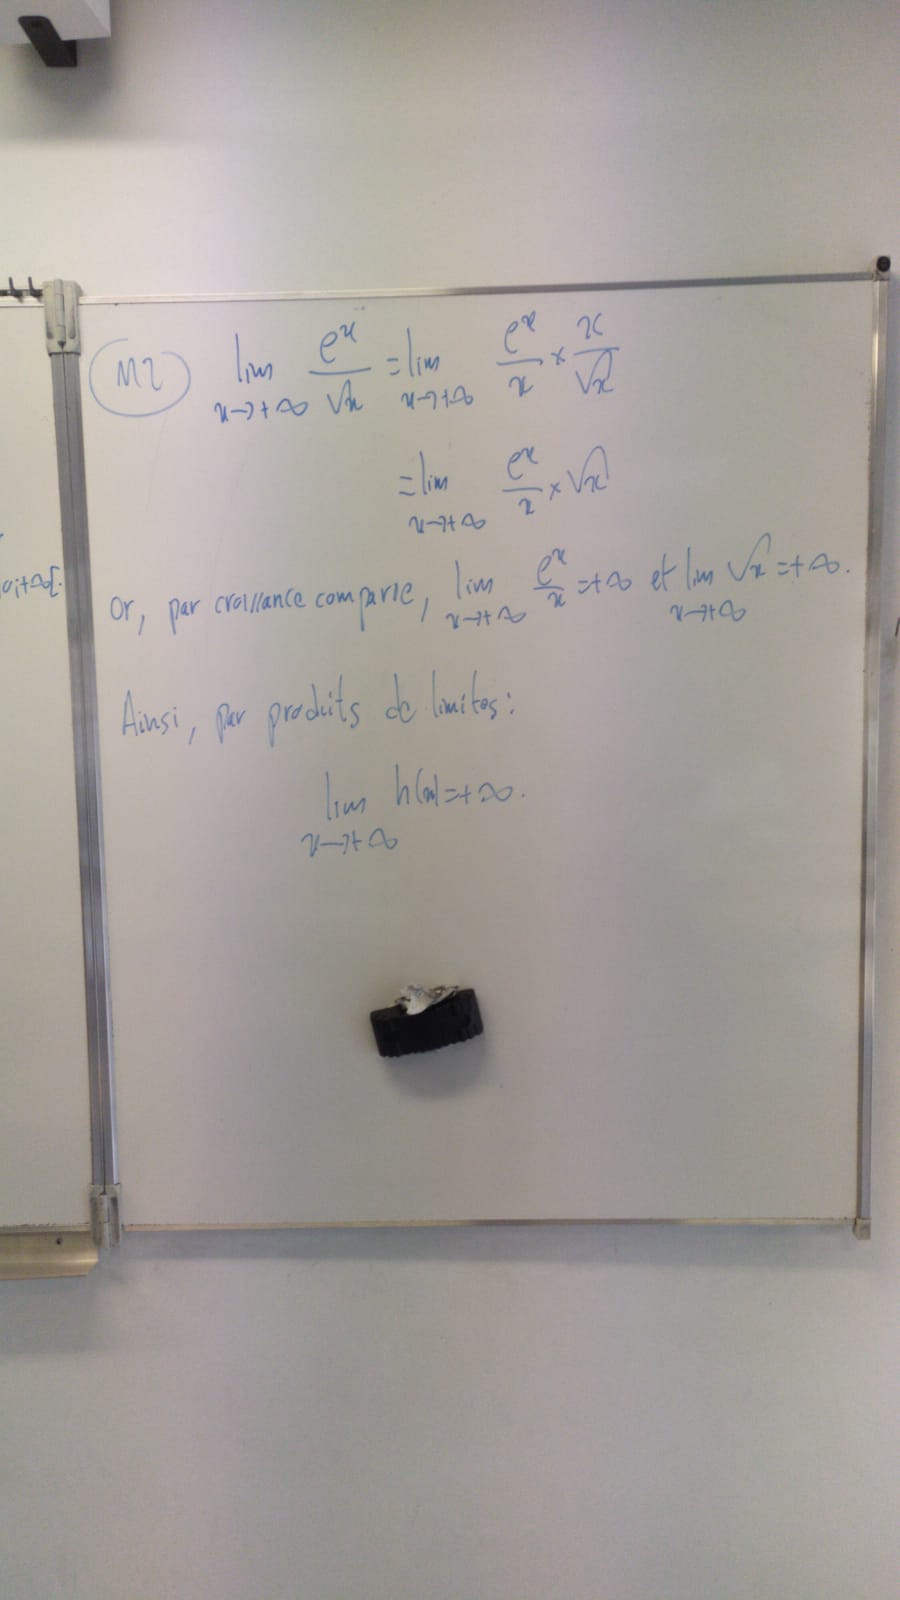 M2 lim x→+∞ e^x/√x = lim x→+∞ e^x/x × x/√x
= lim x→+∞ e^x/x × √x
0;+∞[.
Or, par croissance comparée, lim x→+∞ e^x/x =+∞ et lim x→+∞ √x =+∞.
Ainsi, par produits de limites:
lim x→+∞ h(x)=+∞.